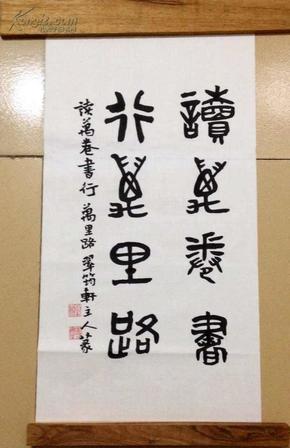 讀萬卷書
行萬里路
讀萬卷書行萬里路 翠筠軒主人篆